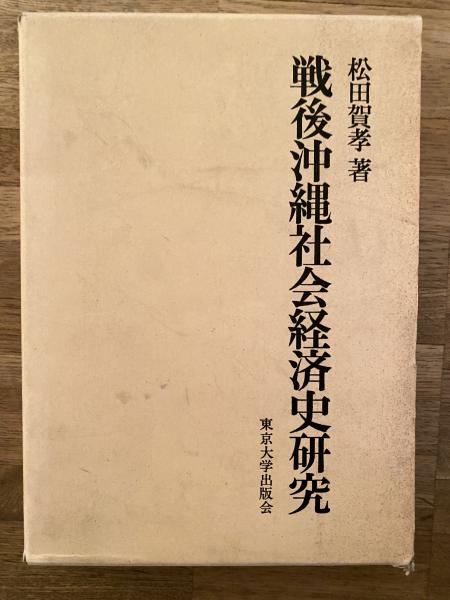 松田賀孝 著
戦後沖縄社会経済史研究
東京大学出版会